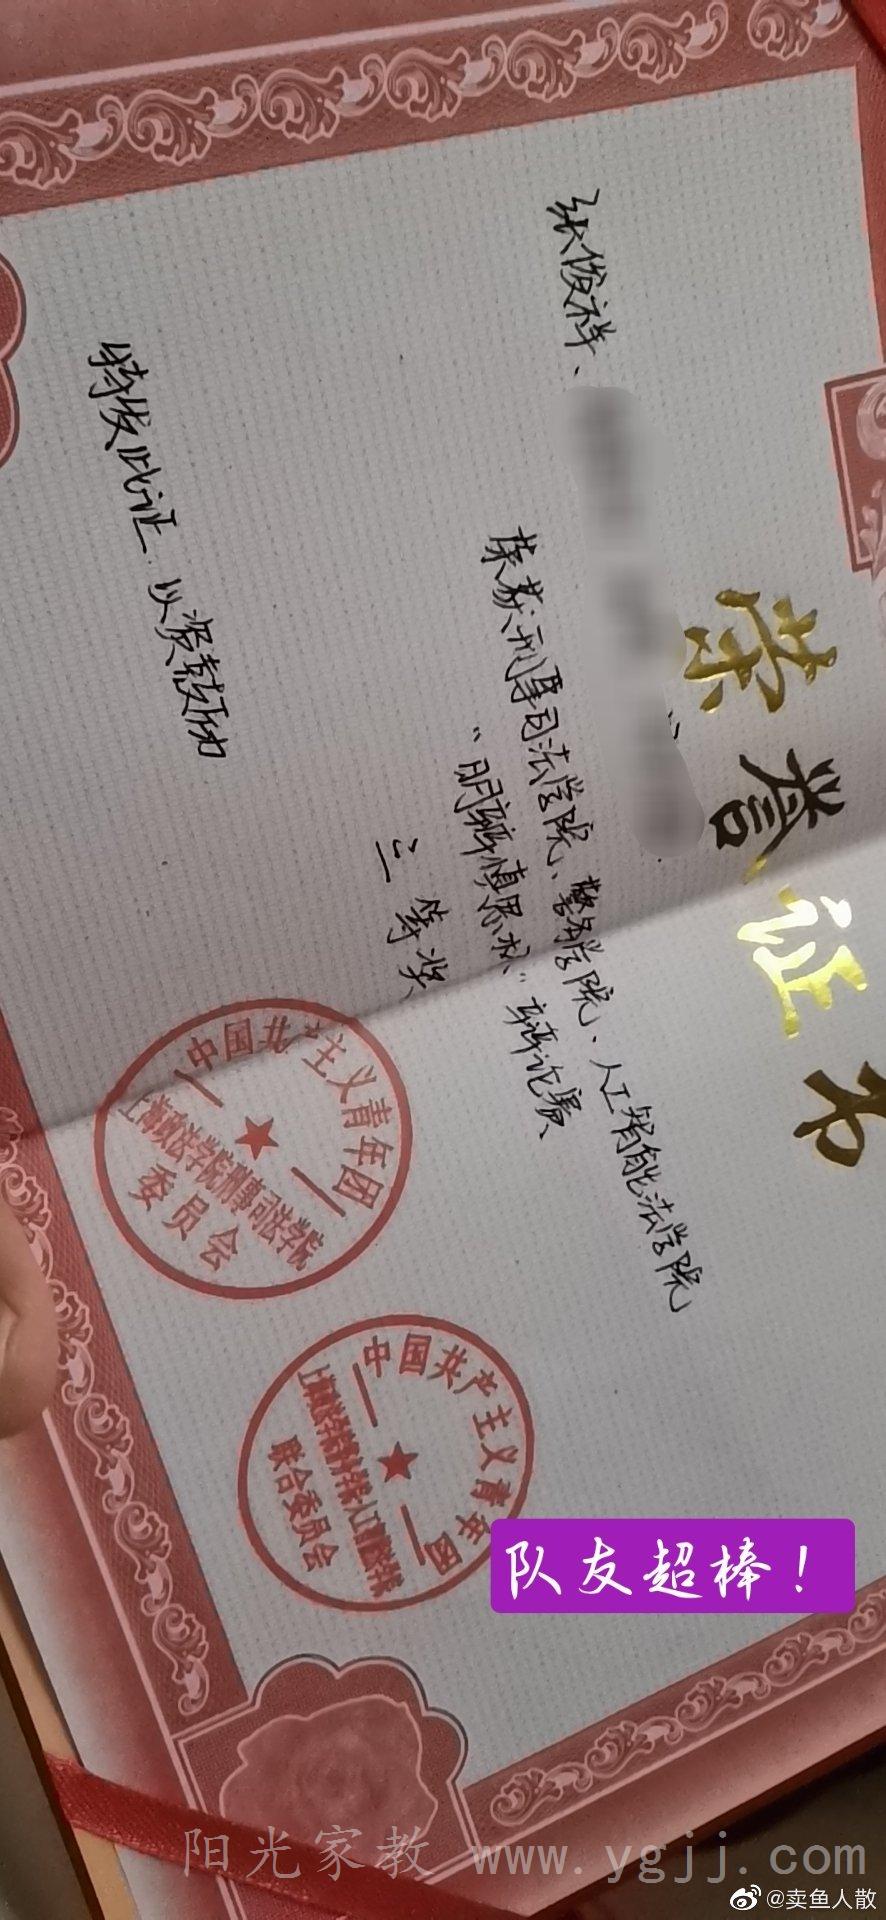 荣誉证书
张俊祥、
荣获刑事司法学院、警务学院、人工智能法学院
“明辨慎思杯”辩论赛
三等奖
特发此证.以资鼓励
中国共产主义青年团
上海政法学院刑事司法学院
委员会
中国共产主义青年团
联合委员会
队友超棒！
阳光家教 www.ygjj.com
@卖鱼人散